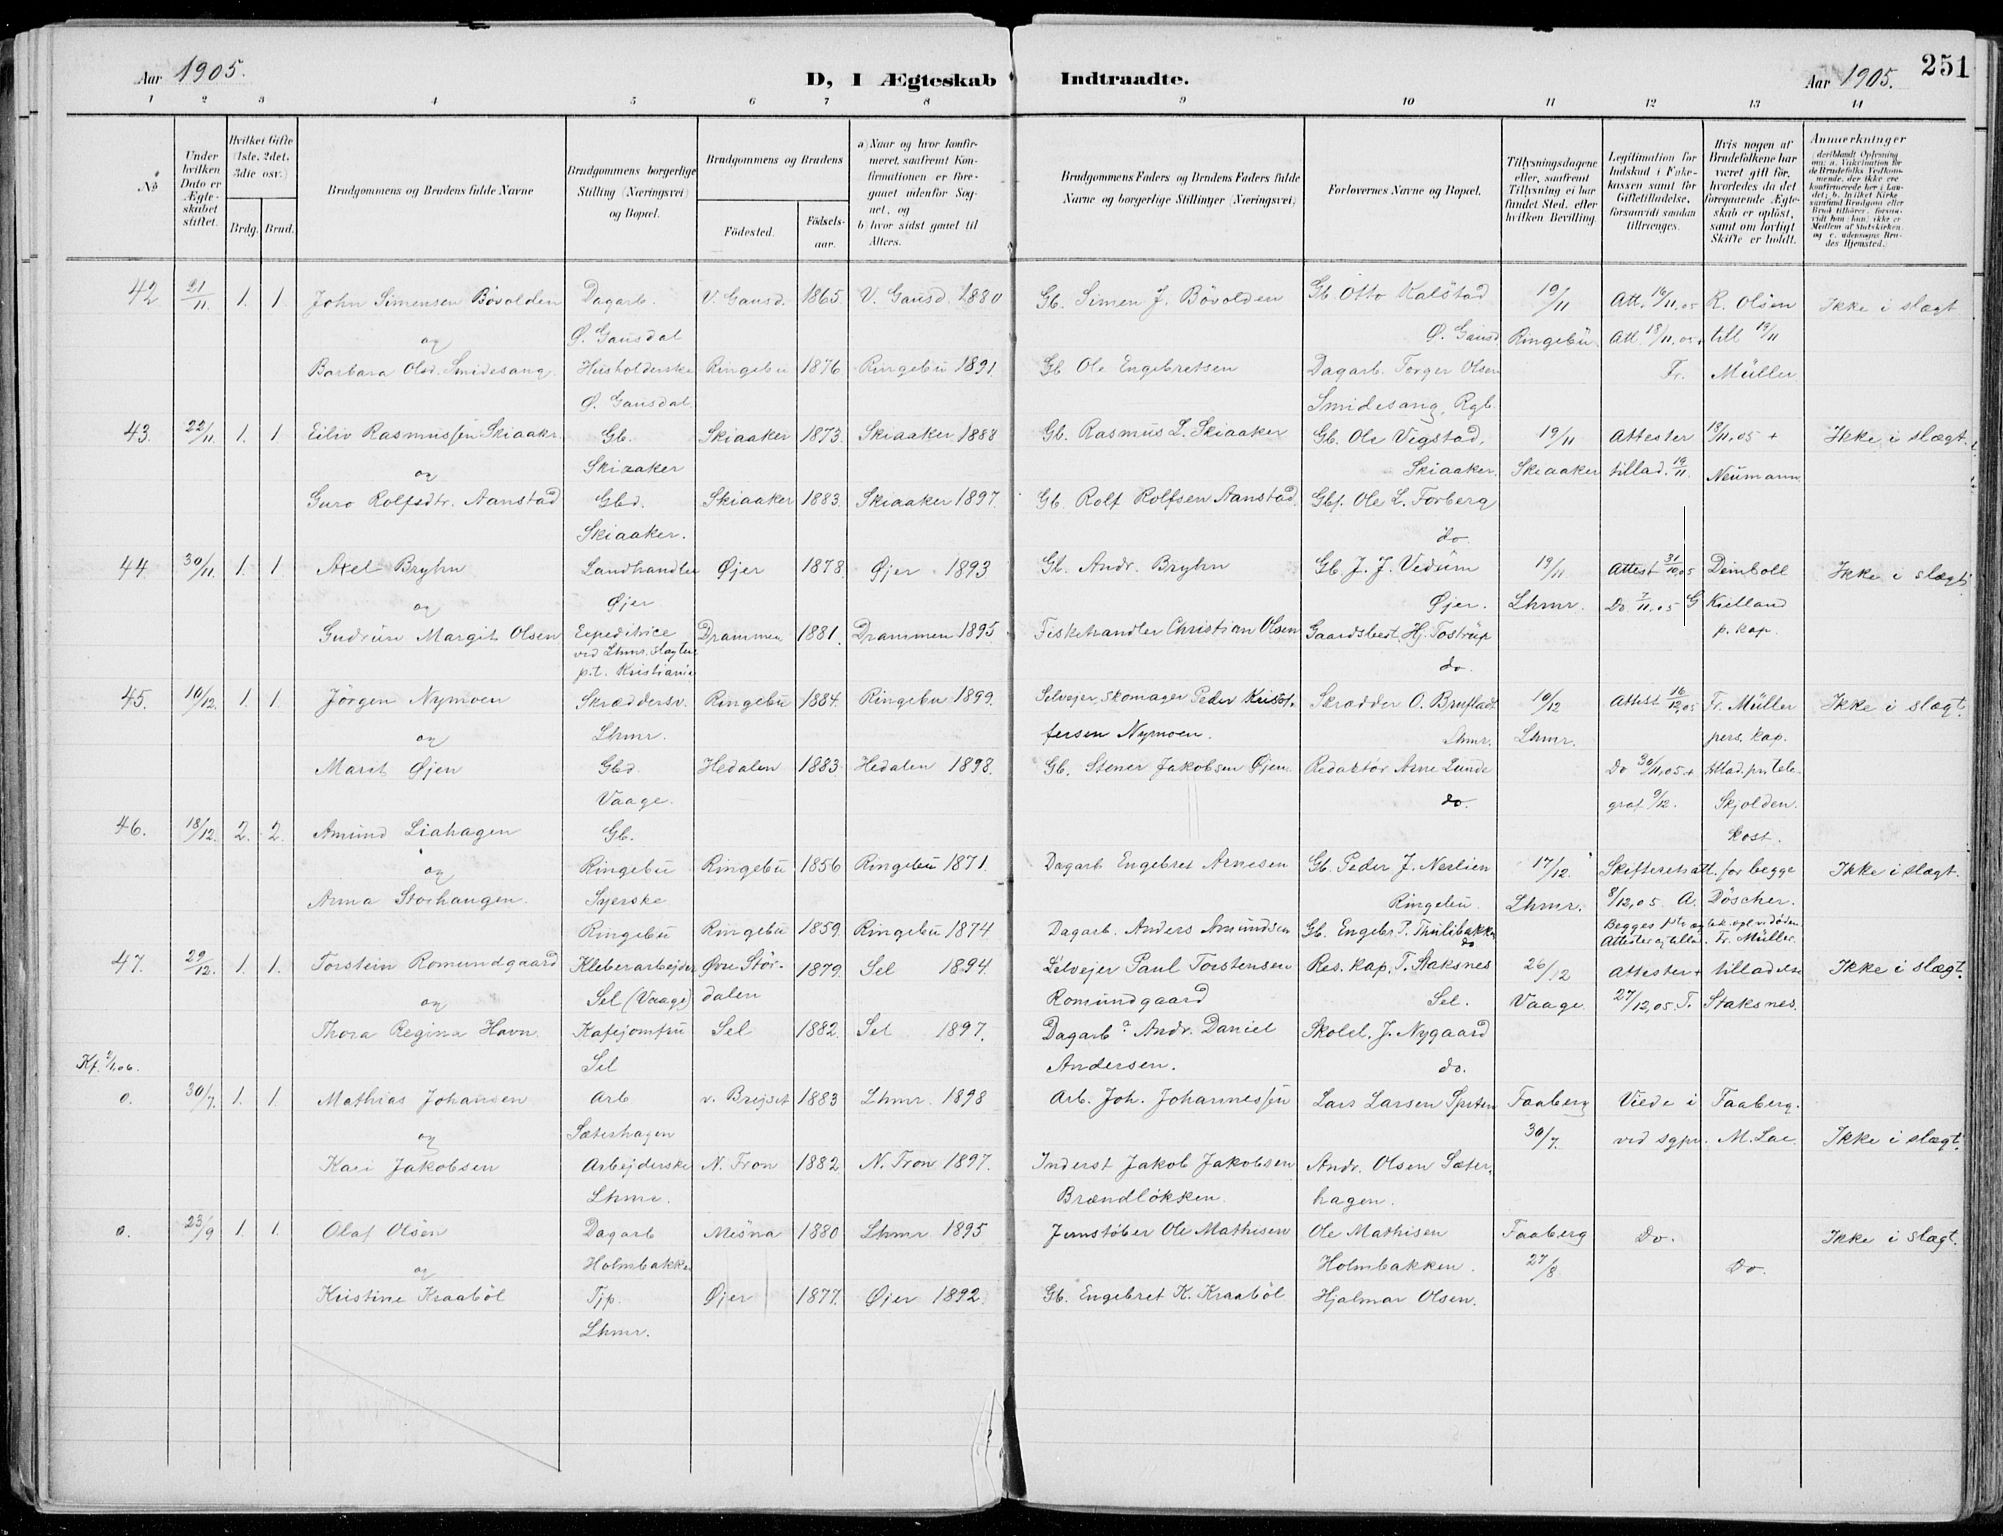 251
Aar 1905. D, I Ægteskab Indtraadte. Aar 1905.
1 2 3 4 5 6 7 8 9 10 11 12 13 14
No
Under hvilken Dato er Ægteskabet stiftet.
Hvilket Gifte (1ste, 2det, 3die osv.)
Brdg. Brud.
Brudgommens og Brudens fulde Navne
Brudgommens borgerlige Stilling (Næringsvei) og Bopæl.
Brudgommens og Brudens
Fødested. Fødsels-aar.
a) Naar og hvor konfirmeret, saafremt Konfirmationen er foregaaet udenfor Sognet, og
b) hvor sidst gaaet til Alters.
Brudgommens Faders og Brudens Faders fulde Navne og borgerlige Stillinger (Næringsvei)
Forlovernes Navne og Bopæl.
Tillysningsdagene eller, saafremt Tillysning ei har fundet Sted, efter hvilken Bevilling
Legitimation for Indskud i Enkekassen samt for Giftetilladelse, forsaavidt saadan tiltrænges.
Hvis nogen af Brudefolkene har været gift før, hvorledes da det foregaaende Ægteskab er opløst, samt om lovligt Skifte er holdt.
Anmerkninger
42 21/11. 1. 1. John Simensen Bövolden Dagarb. V. Gausd. 1865. V. Gausd. 1880 Gb. Simen J. Bövolden Gb. Otto Kalstad 19/11 Att. 16/11.05 R. Olsen Ikke i slægt
og Ø. Gausdal Ø. Gausd Ringebu Att. 18/11.05+ till 19/11
Barbara Olsd. Smidesang Husholderske Ringebu 1876 Ringebu 1891. Gb. Ole Engebretsen Dagarb. Torger Olsen Fr. Müller
Ø. Gausdal. Smidesang, Rgb.
43. 22/11 1. 1 Eiliv Rasmussen Skiaaker Gb. Skiaaker 1873. Skiaaker 1888 Gb. Rasmus L. Skiaaker Gb. Ole Vigstad, 19/11 Attester 18/11.05 + Ikke i slægt.
og Skiaaker Skiaaker. Skiaaker tillad. 19/11. Neumann
Guro Rolfsdtr. Aanstad Gbd. Skiaaker 1883. Skiaaker 1897. Gb. Rolf Rolfsen Aanstad. Gbf. Ole L. Forberg
Skiaaker. do.
44 30/11. 1. 1 Axel Bryhn Landhandler Øjer 1878. Øjer 1893 Gb. Andr. Bryhn Gb. J. J. Vedum 19/11 Attest 31/10.05 Deinboll Ikke i slægt.
og Øjer Øjer. Lhmr. Do 7/11.05 G Kielland
Gudrun Margit Olsen Expeditrice Drammen 1881. Drammen 1895. Fiskehandler Christian Olsen Gaardsbest. Hj. Tostrup p. kap.
ved Lhmr. Slagteri
p.t. Kristiania do.
45. 10/12. 1. 1. Jörgen Nymoen Skræddersv. Ringebu 1884. Ringebu 1899. Selvejer, Skomager Peder Kristof- Skrædder O. Brufladt 10/12 Attest 16/12.05 Fr. Müller Ikke i slægt.
og Lhmr. fersen Nymoen. Lhmr. Lhmr. pers. kap.
Marit Øjen Gbd. Hedalen 1883 Hedalen 1898. Gb. Stener Jakobsen Øjen. Redaktör Arne Lunde Do 30/11.05+ tillad. pr. tele-
Vaage. do. graf 9/12. Skjolden.
46. 18/12. 2. 2. Amund Liahagen Gb. kost.
og Ringebu Ringebu 1856 Ringebu 1871. Dagarb Engebret Arnesen Gb. Peder J. Nerlien 17/12. Skifteretsatt. for begge Ikke i slægt.
Anna Storhaugen. Syerske Ringebu. Lhmr. 8/12.05. A. Döscher.
Ringebu Ringebu 1859. Ringebu 1874 Dagarb. Anders Amundsen Gb. Engebr. P. Thulibakken do
Attester og tillad. Fr. Müller.
47. 29/12. 1. 1. Torstein Romundgaard Kleberarbejder Øvre Stör- 1879. Sel 1894. Selvejer Paul Torstensen Res. kap. T. Staksnes 26/12 Attester + tilladelse Ikke i slægt.
og Sel (Vaage) dalen Romundgaard Sel. Vaage 27/12.05. T. Staksnes.
Thora Regina Havn. Kafejomfru Sel 1882. Sel 1897. Dagarb? Andr. Daniel Skolel. J. Nygaard
Kf. 2/1.06. Sel Andersen. do.
0. 30/7. 1. 1. Mathias Johansen Arb v. Brejset 1883 Lhmr. 1898 Arb. Joh. Johannessen Lars Larsen Faaberg Viede i Faaberg.
og Sæterhagen 30/7. ved sgpr. M. Lae. Ikke i slægt.
Kari Jakobsen Arbejderske N. Fron 1882 N. Fron 1897. Inderst Jakob Jakobsen Andr. Olsen Sæter-
Lhmr. Brændlökken. hagen.
0. 23/9 1. 1. Olaf Olsen Dagarb Mesna 1880 Lhmr 1895 Jernstöber Ole Mathisen Ole Mathisen Faaberg Do. Ikke i slægt.
og Holmbakken Holmbakken. 27/8 Do.
Kristine Kraaböl Tjp. Øjer 1877. Øjer 1892. Gb. Engebret K. Kraaböl Hjalmar Olsen.
Lhmr.